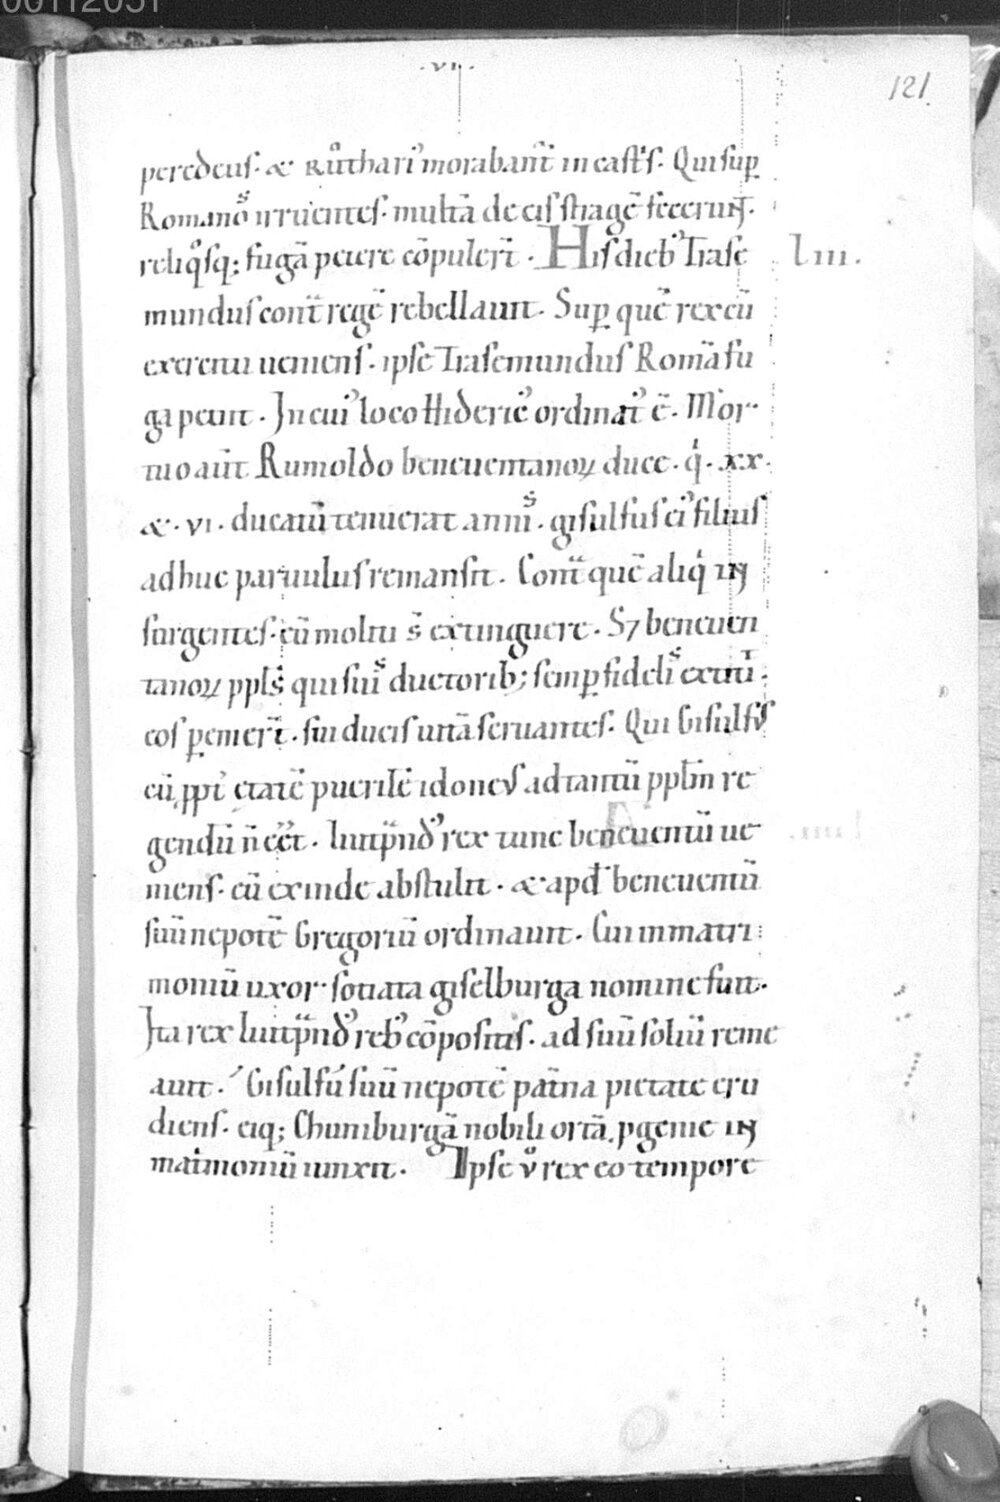 00112051
.VI.
121
peredeus. & Ruͦthari᾽ morabant̄ in cast̄s. Qui sup̲
Romanoˢ irruentes. multā de eis stragē fecerunt.
reliqͦsq; fugā petere cōpuler̄t. His dieb᾽ Trase liii.
mundus cont̄ regē rebellauit. Sup̲ quē rex cū
exercitu ueniens. ipse Trasemundus Romā fu
ga petiit. In cui᾽ loco Hilderic᾽ ordinat᾽ ē. Mor
tuo aūt Rumoldo beneuentanoꝝ duce. qͥ. xx.
&. vi. ducatū tenuerat anniˢ. gisulfus ei᾽ filius
adhuc paruulus remansit. Cont̄ quē aliqͥ in
surgentes. eū moliti s̄ extinguere. S; beneuen
tanoꝝ ppl̄s qui suiˢ ductorib; semp̲ fideliˢ extitiᵗ.
eos p̲emer̄t. sui ducis uitā seruantes. Qui Gisulfus
cū ꝓpt᾽ etatē puerilē idoneus ad tantū ppl̄m re
gendū n̄ eēt. liutp̄nd᾽ rex tunc beneuentū ue
niens. eū exinde abstulit. & apd̄ beneuentū
suū nepotē Gregoriū ordinauit. Cui in matri
moniū uxor sotiata giselburga nomine fuit.
Ita rex liutp̄nd᾽ reb᾽ cōpositis. ad suū soliū reme
auit. Gisulfū suū nepotē pat̄na pietate eru
diens. eiq; Chuniburgā nobili ortā ꝓgenie in
mat̄moniū iunxit. Ipse uͦ rex eo tempore